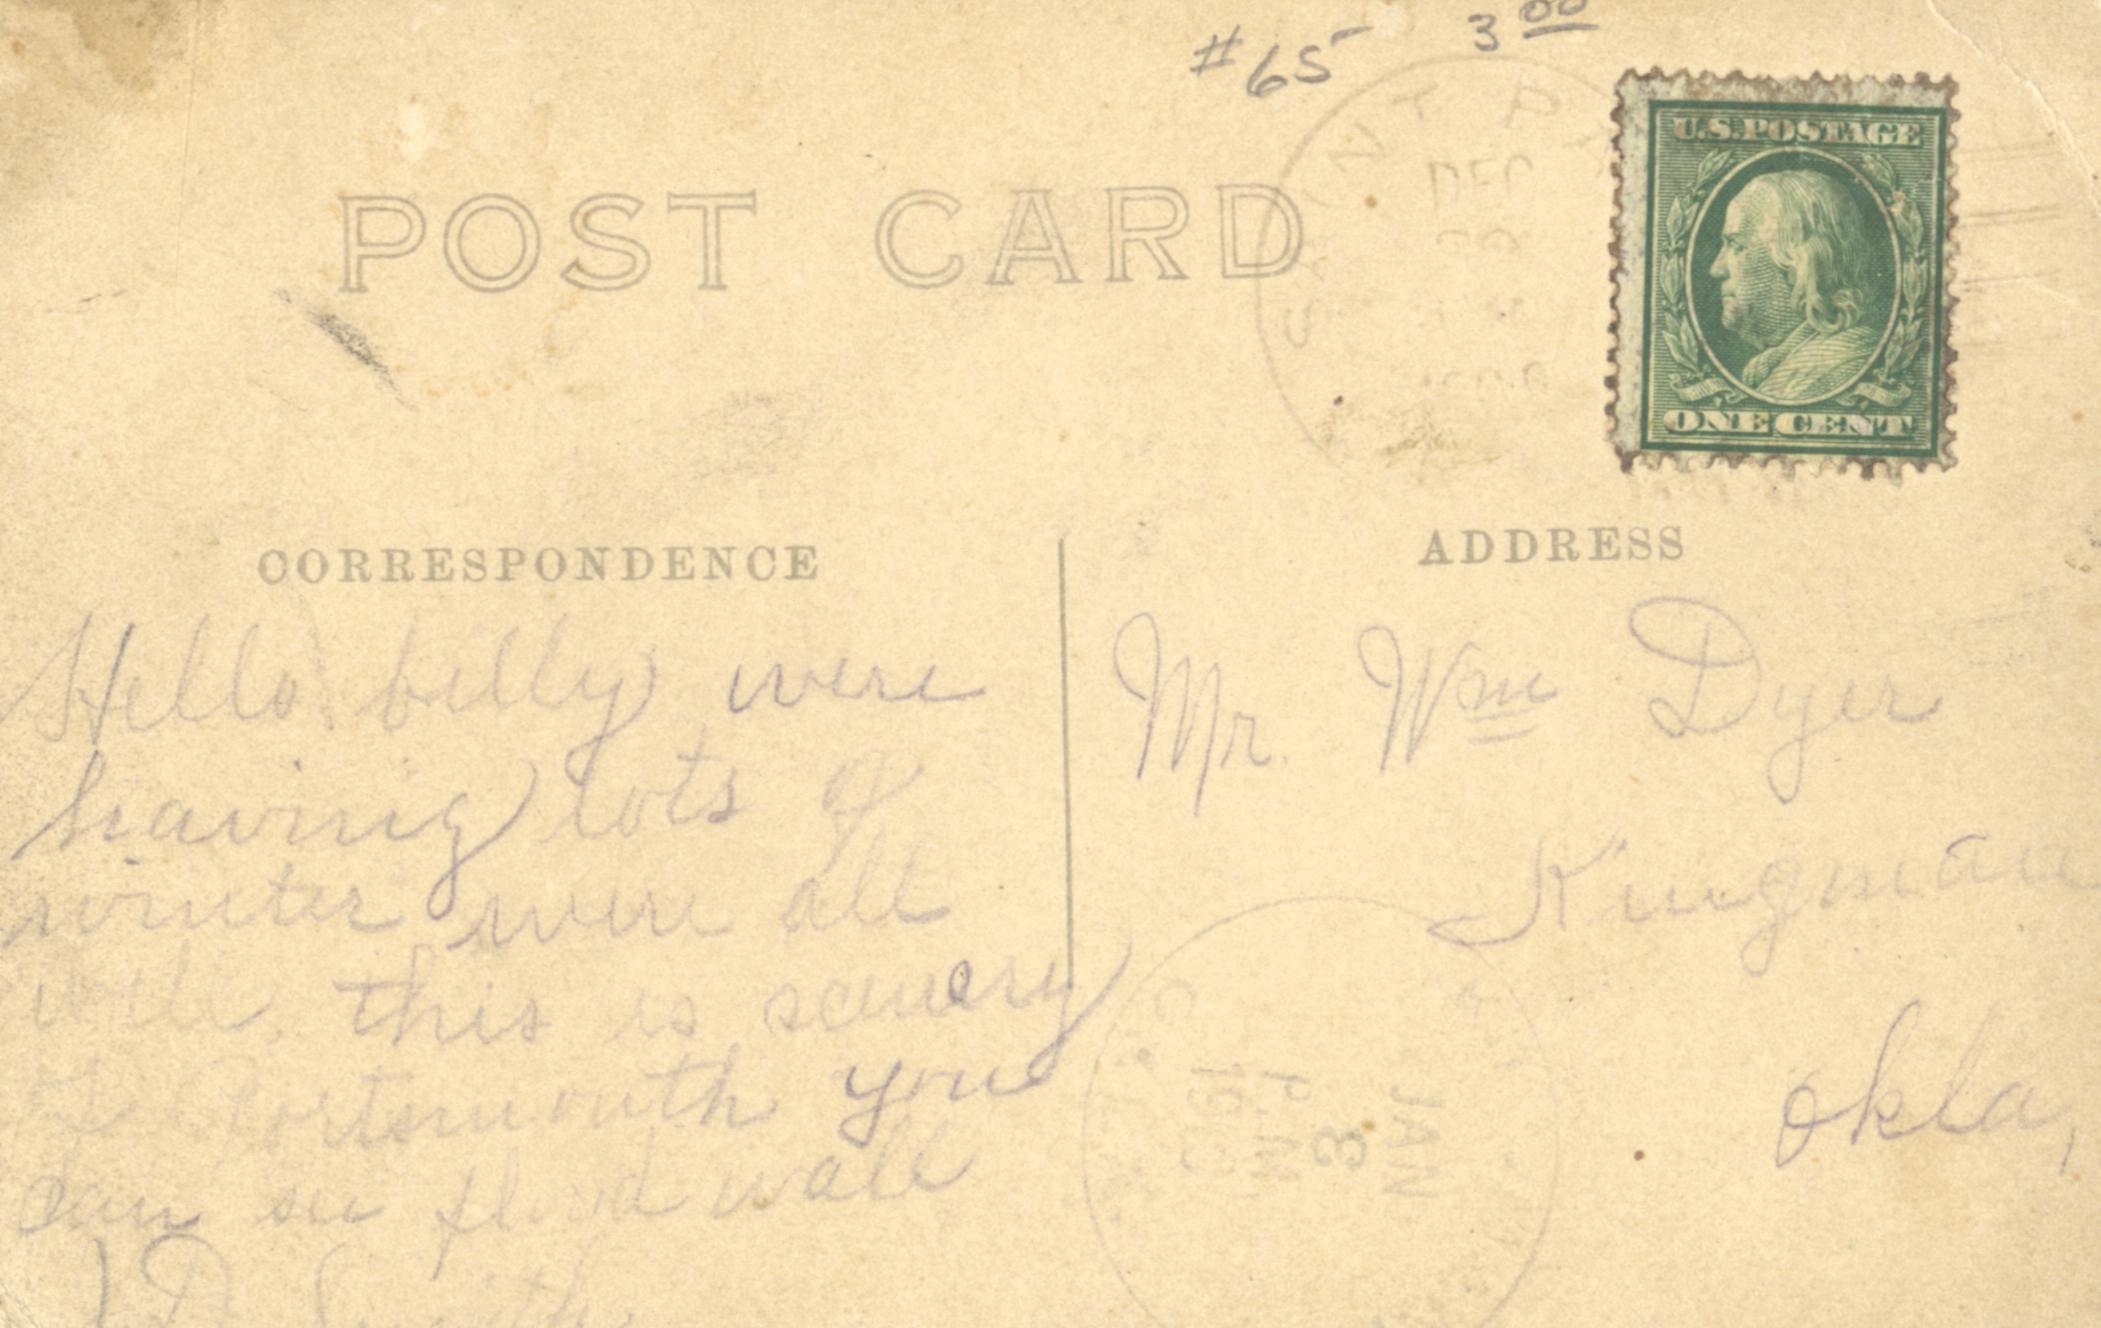 #65 3 00
U.S. POSTAGE
ONE CENT
DEC
POST CARD
CORRESPONDENCE
ADDRESS
Hello billy were
having lots of
winter were all
well. this is scenery
Portsmouth you
can see flood wall
J D Smith
Mr. Wm Dyer
Kingman
Okla,
JAN
3
P.M.